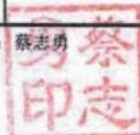 蔡志勇
蔡志
勇印